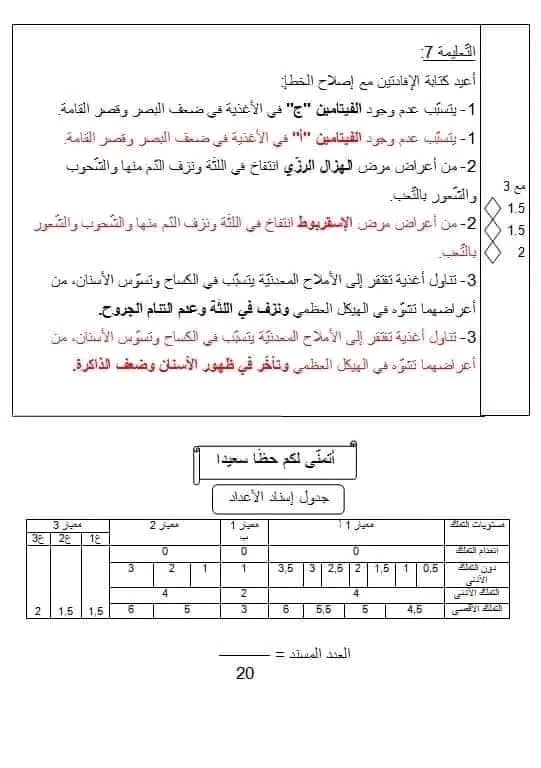 التّعليمة 7:
أعيد كتابة الإفادتين مع إصلاح الخطإ:
1- يتسبّب عدم وجود الفيتامين "ج" في الأغذية في ضعف البصر وقصر القامة.
1- يتسبّب عدم وجود الفيتامين "أ" في الأغذية في ضعف البصر وقصر القامة.
2- من أعراض مرض الهزال الرزّي انتفاخ في اللثّة ونزف الدّم منها والشّحوب
والشّعور بالتّعب.
2- من أعراض مرض الإسقربوط انتفاخ في اللثّة ونزف الدّم منها والشّحوب والشّعور
بالتّعب.
3- تناول أغذية تفتقر إلى الأملاح المعدنيّة يتسبّب في الكساح وتسوّس الأسنان، من
أعراضهما تشوّه في الهيكل العظمي ونزف في اللثة وعدم التئام الجروح.
3- تناول أغذية تفتقر إلى الأملاح المعدنيّة يتسبّب في الكساح وتسوّس الأسنان، من
أعراضهما تشوّه في الهيكل العظمي وتأخّر في ظهور الأسنان وضعف الذاكرة.
مع 3
1.5
1.5
2
أتمنّى لكم حظّا سعيدا
جدول إسناد الأعداد
مستويات التملك معيار 1 أ معيار 1 ب معيار 2 معيار 3
ع1 ع2 ع3
انعدام التملك 0 0 0
دون التملك الأدنى 0,5 1 1,5 2 2,5 3 3,5 1 1 2 3
التملك الأدنى 4 2 4
التملك الأقصى 4,5 5 5,5 6 3 5 6 1,5 1.5 2
العدد المسند = ـــــــــ
20